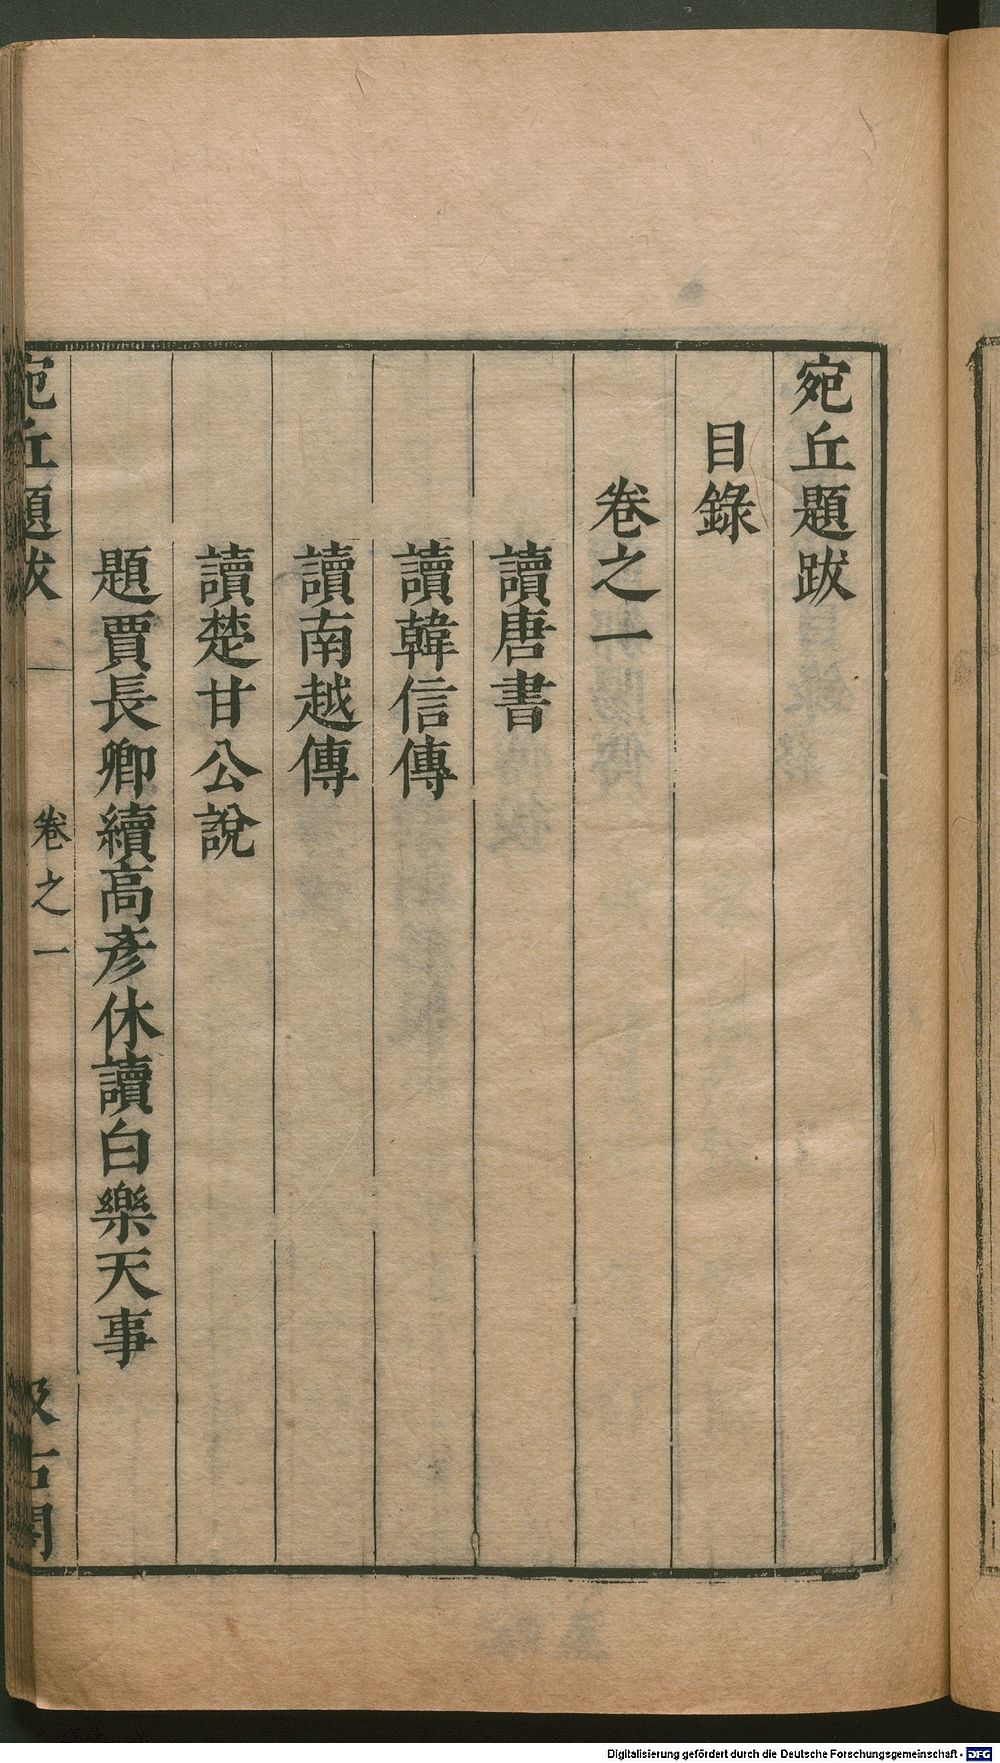 宛丘題跋
目錄
卷之一
讀唐書
讀韓信傳
讀南越傳
讀楚甘公說
題賈長卿續高彥休讀白樂天事
宛丘題跋 卷之一 汲古閣
Digitalisierung gefördert durch die Deutsche Forschungsgemeinschaft - DFG